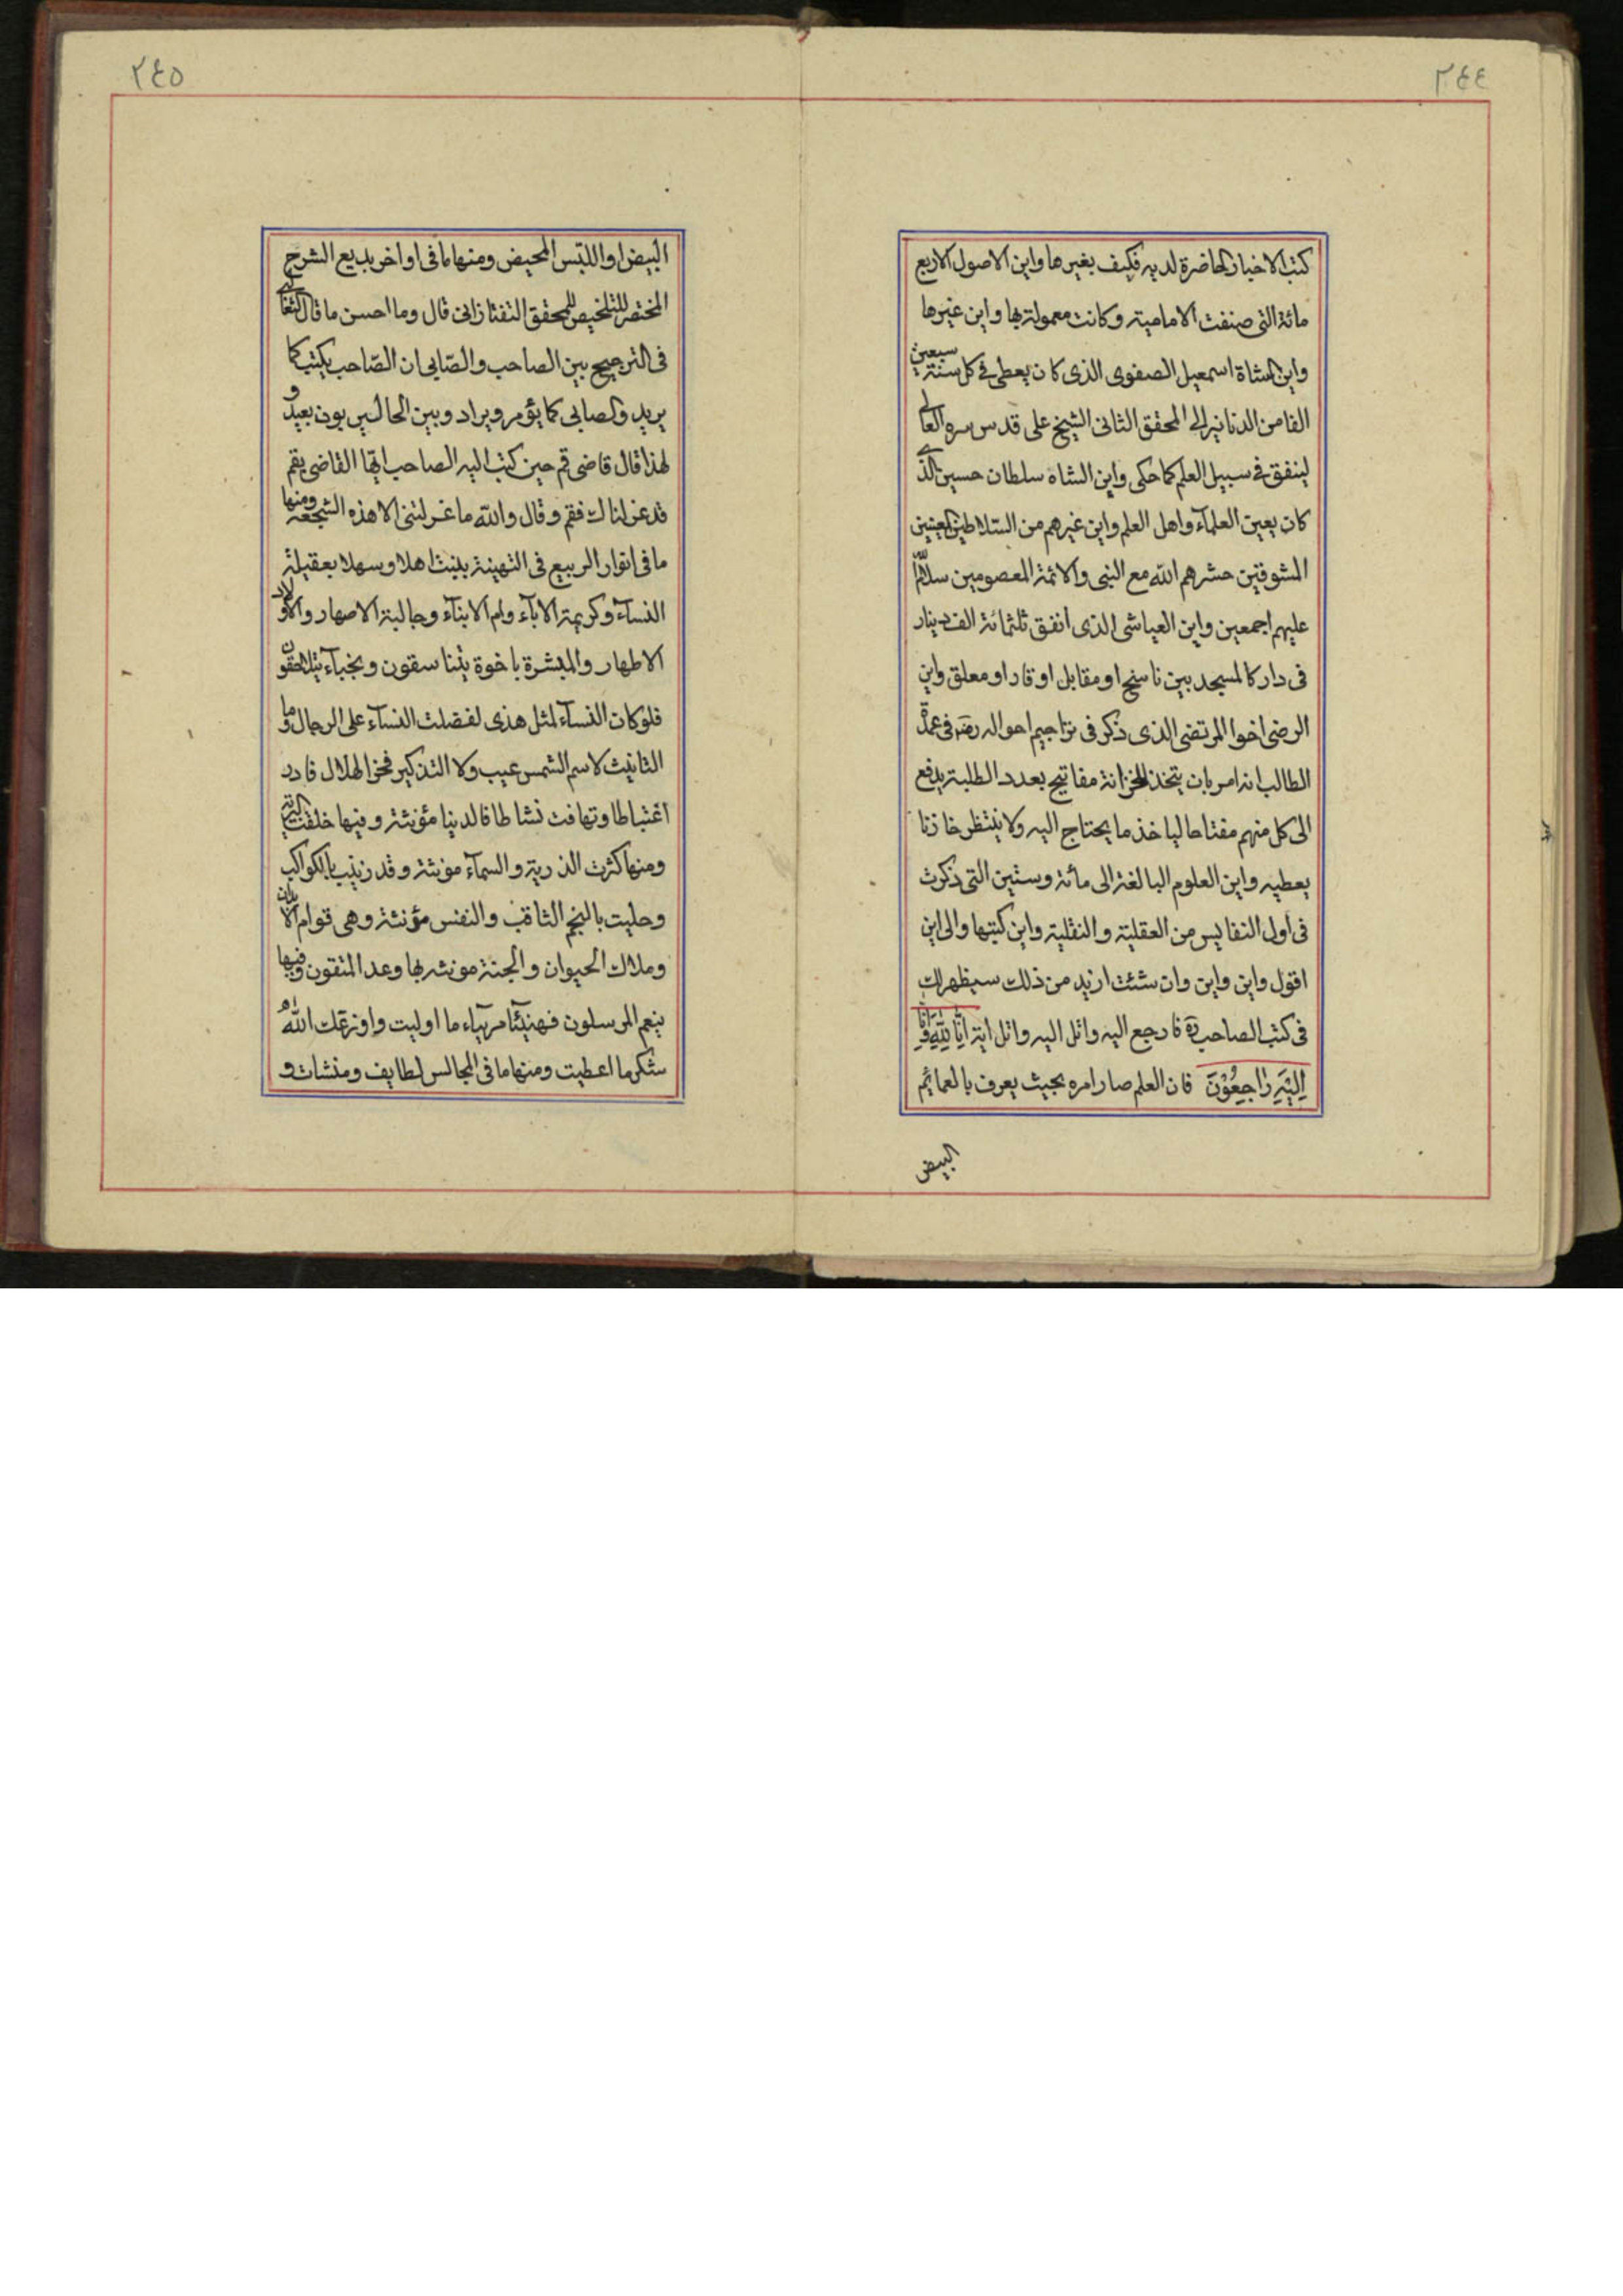 ٢٤٤
كتب الاخبار الحاضرة لديه فكيف بغيرها واين الاصول الاربع
مائة التى صنفت الامامية وكانت معمولة بها واين غيرها
واين الشاة اسمعيل الصفوى الذى كان يعطى فے كل سنة سبعين
الفا من الدنانير الى المحقق الثانى الشيخ على قدس سره العالى
لينفق فے سبيل العلم كما حكى واين الشاه سلطان حسين الذے
كان يعين العلمآء واهل العلم واين غيرهم من السلاطين المعينين
المشوقين حشرهم الله مع النبى والائمة المعصومين سلام الله
عليهم اجمعين واين العياشى الذى انفق ثلثمائة الف دينار
فى دار كالمسجد بين ناسخ او مقابل او قار او معلق واين
الرضى اخوا المرتضى الذى ذكر فى تراجيم احواله رضه فى عمدة
الطالب انه امر بان يتخذ للخزانة مفاتيح بعدد الطلبة يدفع
الى كل منهم مفتاحا لياخذ ما يحتاج اليه ولا ينتظر خازنا
يعطيه واين العلوم البالغة الى مائة وستين التى ذكرت
فى اول النفايس من العقلية والنقلية واين كتبها والى اين
اقول واين واين وان شئت ازيد من ذلك سيظهر لك
فى كتب الصاحب ره فارجع اليه واتل اليه واتل اية اِنّا لِلّهِ وَاِنّا
اِلَيْهِ رٰاجِعُوْنَ فان العلم صار امره بحيث يعرف بالعمايم
البيض
٢٤٥
البيض او اللبس المحيض ومنها ما فى اواخر بديع الشرح
المختصر للتلخيص للمحقق التفتازانى قال وما احسن ما قال الثعالبے
فى الترجيح بين الصاحب والصّابى ان الصّاحب يكتب كما
يريد والصابى كما يؤمر ويراد وبين الحالين بون بعيد و
لهذا قال قاضى قم حين كتب اليه الصاحب ايها القاضى بقم
قد عزلناك فقم وقال والله ما عزلتنى الا هذه الشجعة ومنها
ما فى انوار الربيع فى التهينة ببنت اهلا وسهلا بعقيلة
النسآء وكريمة الابآء وام الابنآء وجالبة الاصهار والاولاد
الاطهار والمبشرة باخوة يتناسقون ونجبآء يتلاحقون
فلو كان النسآء لمثل هذى لفضلت النسآء على الرجال وما
التانيث لاسم الشمس عيب ولا التذكير فخر الهلال فادر
اغتباطا وتهافت نشاطا فالدنيا مؤنثة وفيها خلقت البرية
ومنها كثرت الذرية والسمآء مؤنثة وقد زينت بالكواكب
وحليت بالنجم الثاقب والنفس مؤنثة وهى قوام الابدان
وملاك الحيوان والجنة مونثه بها وعد المتقون وفيها
ينعم المرسلون فهنيئا مريئاء ما اوليت واوزعك الله
شكر ما اعطيت ومنها ما فى المجالس لطايف ومنشات و